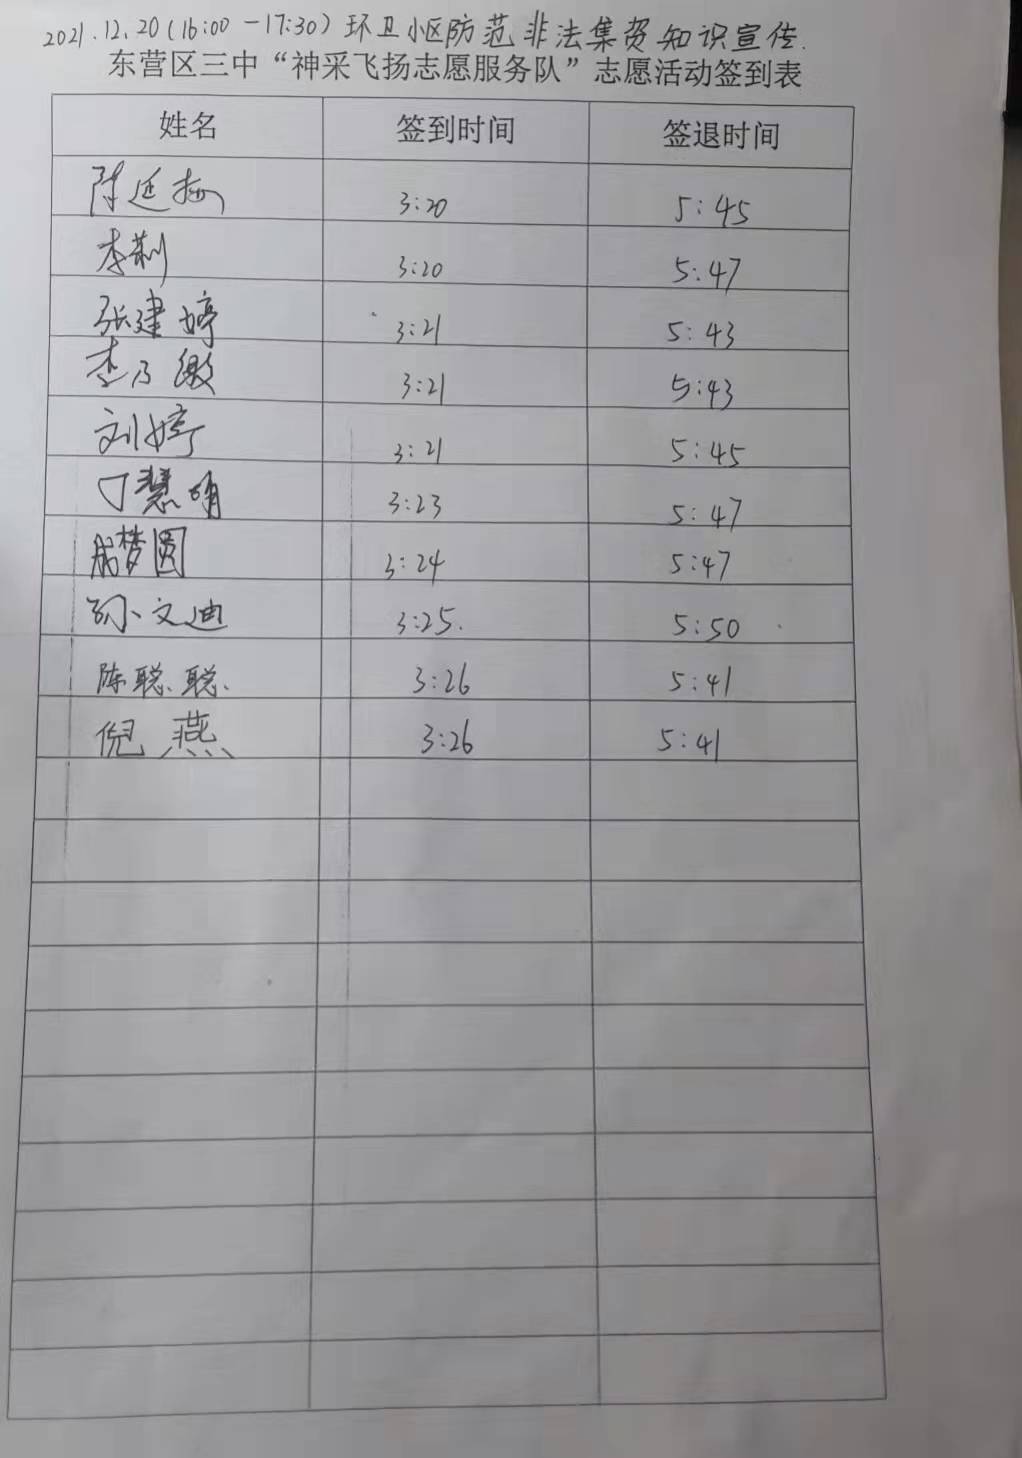 2021.12.20(16:00-17:30)环卫小区防范非法集资知识宣传.
东营区三中“神采飞扬志愿服务队”志愿活动签到表
姓名 签到时间 签退时间
陈延梅 3:20 5:45
李莉 3:20 5:47
张建婷 3:21 5:43
李乃 3:21 5:43
刘婷 3:21 5:45
丁慧明 3:23 5:47
梦圆 3:24 5:47
孙文迪 3:25. 5:50
陈聪聪. 3:26 5:41
倪燕 3:26 5:41